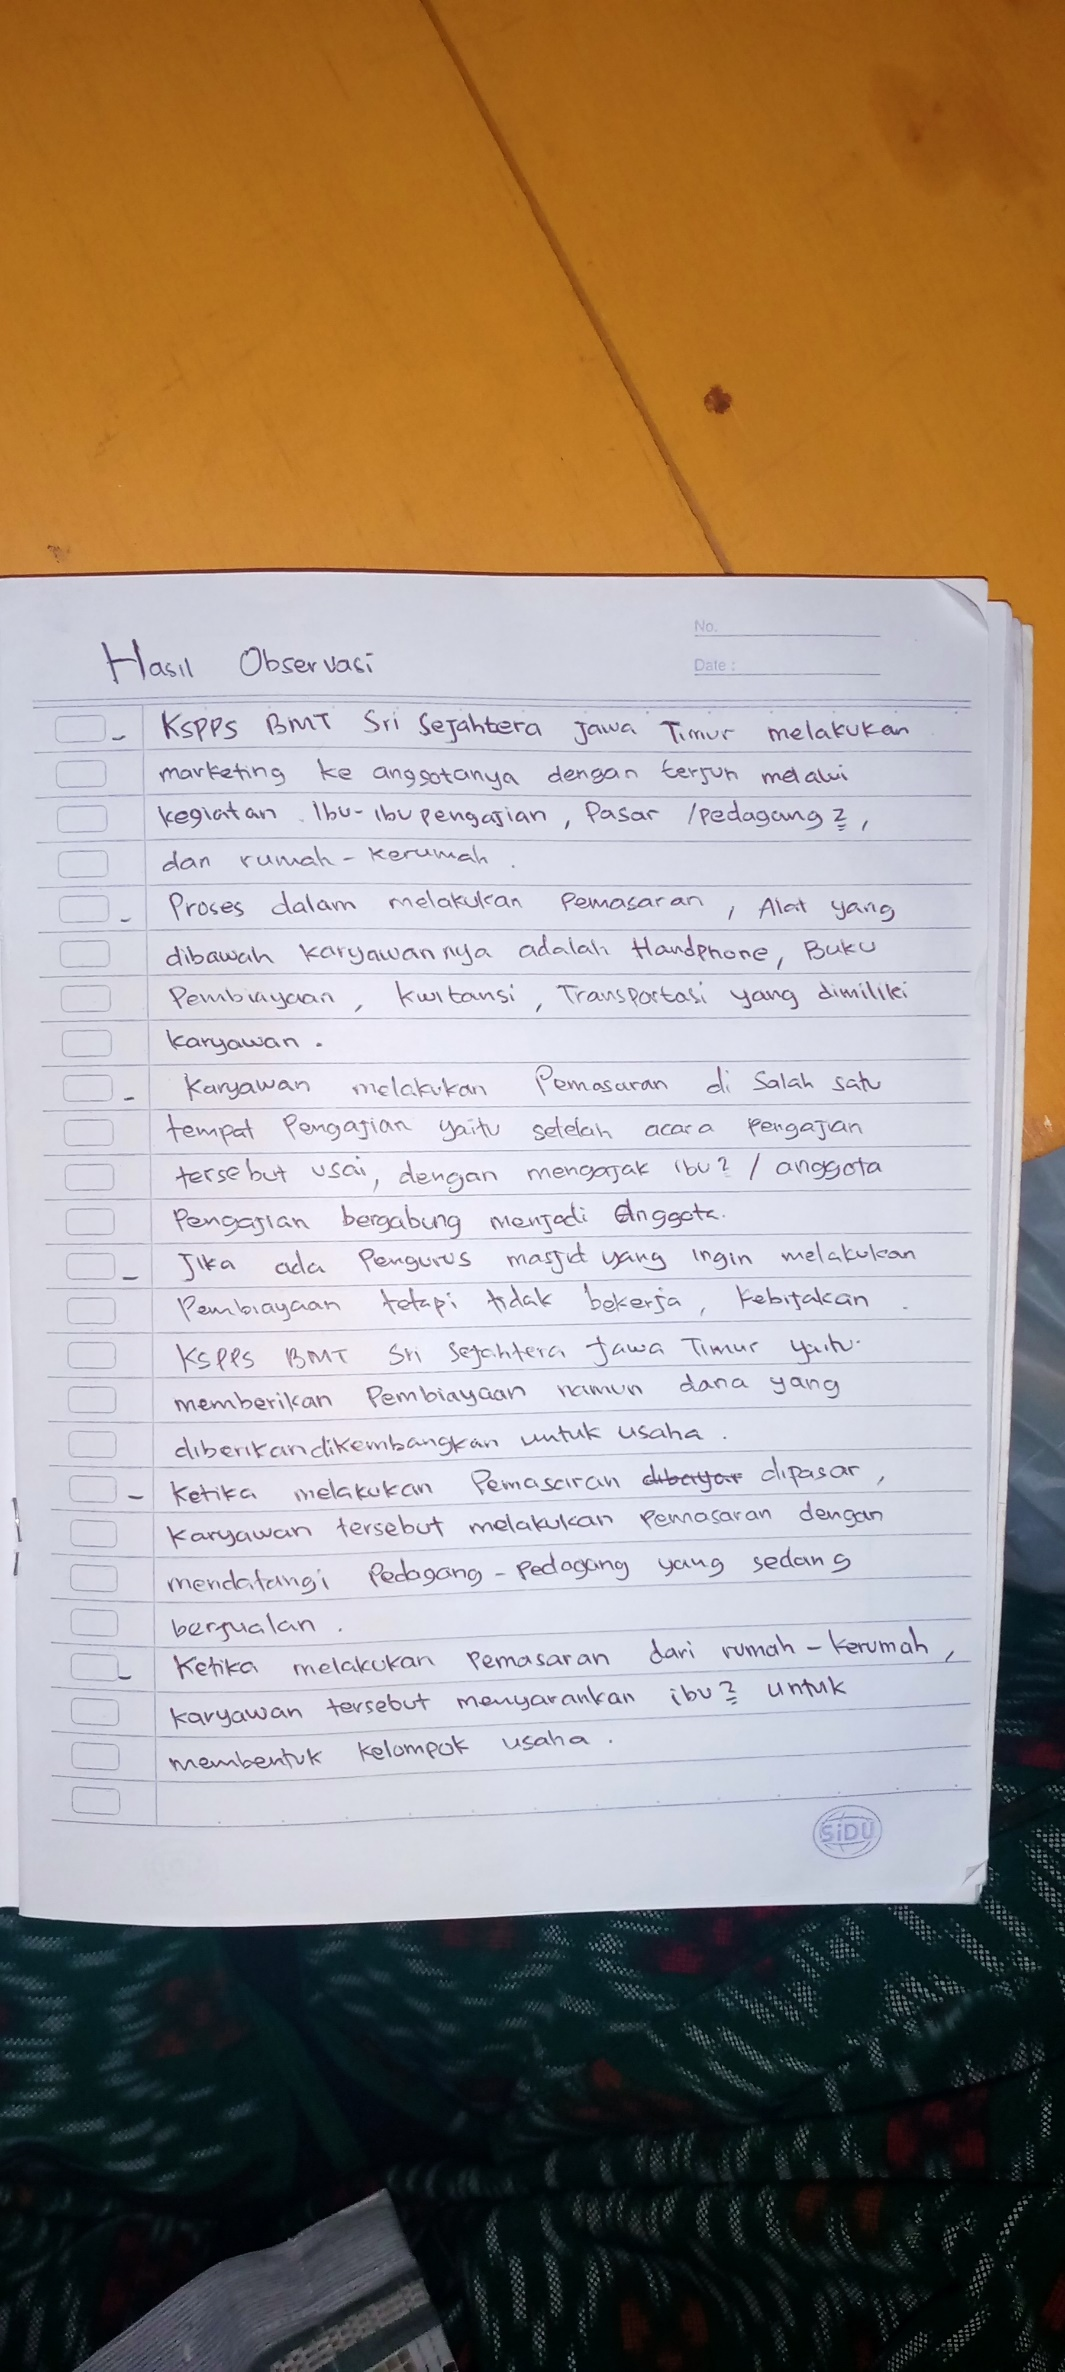 No.
Date :
Hasil Observasi
- KSPPS BMT Sri Sejahtera Jawa Timur melakukan
marketing ke anggotanya dengan terjun melalui
kegiatan Ibu-ibu pengajian, Pasar /pedagang2,
dan rumah-kerumah.
- Proses dalam melakukan Pemasaran, Alat yang
dibawah karyawannya adalah Handphone, Buku
Pembiayaan, kwitansi, Transportasi yang dimiliki
karyawan.
- Karyawan melakukan Pemasaran di Salah satu
tempat Pengajian yaitu setelah acara Pengajian
tersebut usai, dengan mengajak ibu2 / anggota
Pengajian bergabung menjadi Anggota.
- Jika ada Pengurus masjid yang ingin melakukan
Pembiayaan tetapi tidak bekerja, Kebijakan
KSPPS BMT Sri Sejahtera Jawa Timur yaitu
memberikan Pembiayaan namun dana yang
diberikan dikembangkan untuk usaha.
- Ketika melakukan Pemasaran dibayar dipasar,
Karyawan tersebut melakukan Pemasaran dengan
mendatangi Pedagang-Pedagang yang sedang
berjualan.
- Ketika melakukan Pemasaran dari rumah-kerumah,
karyawan tersebut menyarankan ibu2 untuk
membentuk Kelompok usaha.
SiDU